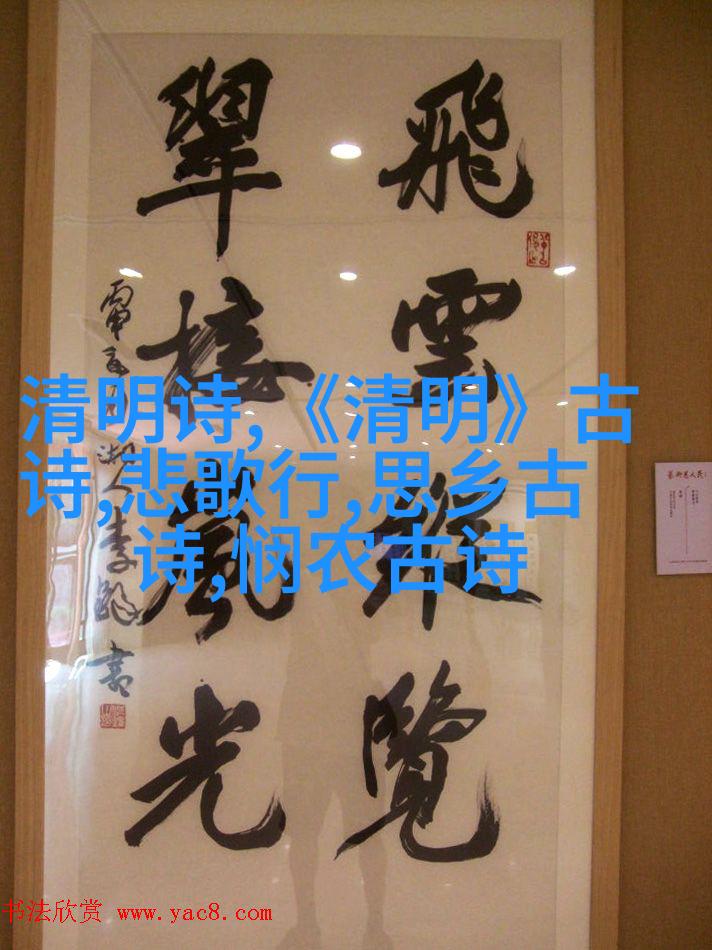 飛雲縱覽
翠接嵐光
李鐸書
清明诗,《清明》古
诗,悲歌行,思乡古
诗,悯农古诗
书法欣赏 www.yac8.com